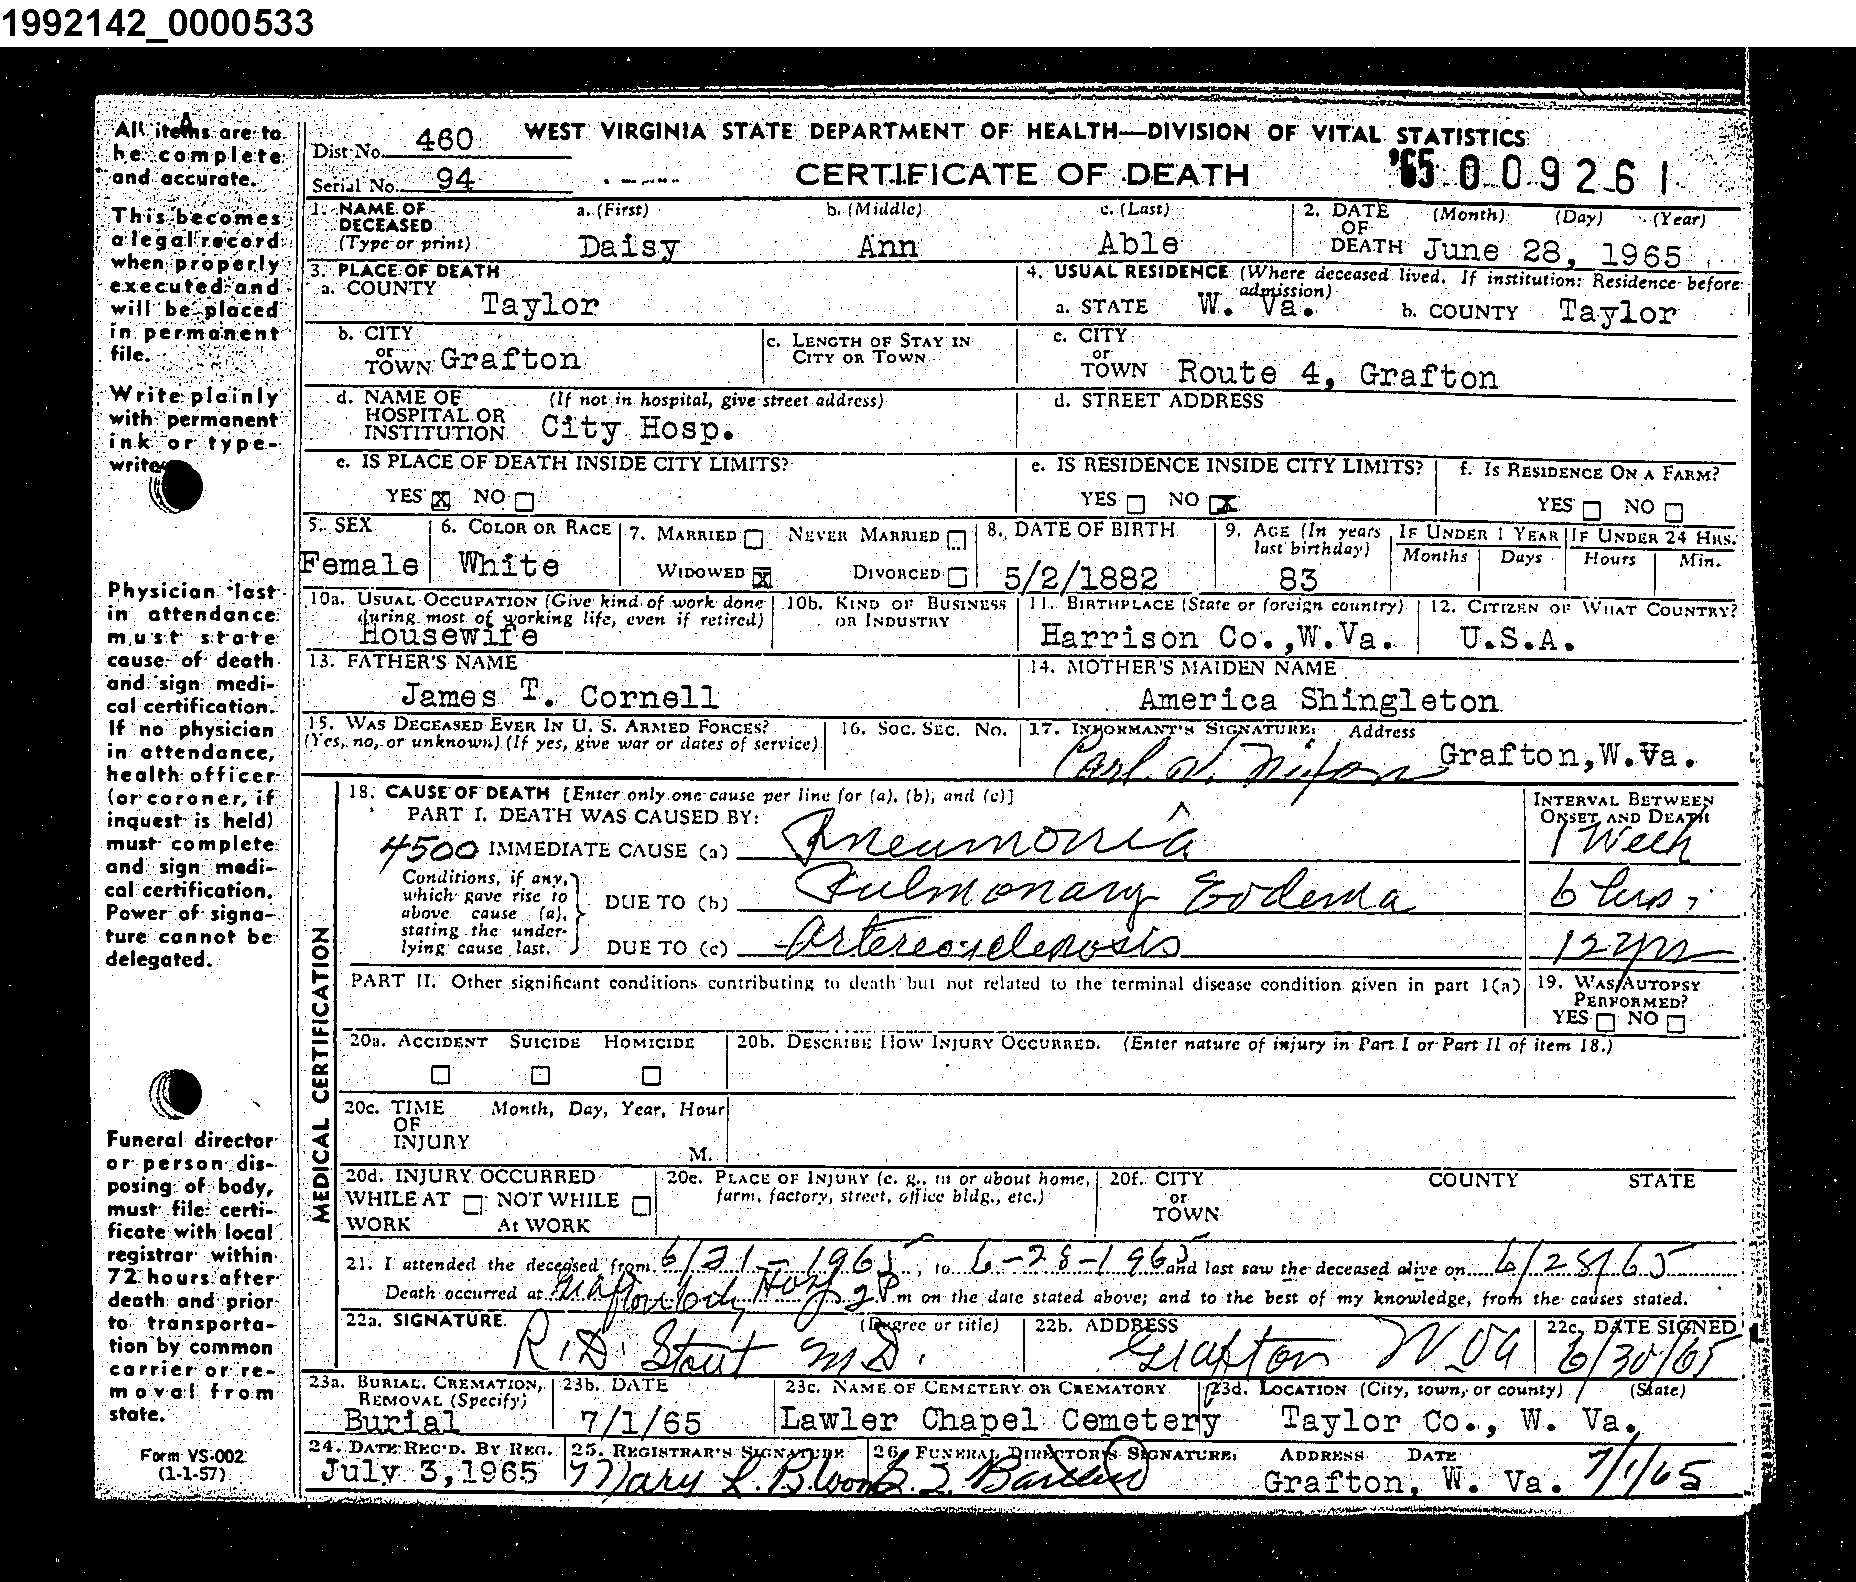 1992142_0000533
All items are to be complete and accurate.
This becomes a legal record when properly executed and will be placed in permanent file.
Write plainly with permanent ink or type-writer
Physician last in attendance must state cause of death and sign medi-cal certification. If no physician in attendance, health officer (or coroner, if inquest is held) must complete and sign medi-cal certification. Power of signa-ture cannot be delegated.
Funeral director or person dis-posing of body, must file certi-ficate with local registrar within 72 hours after death and prior to transporta-tion by common carrier or re-moval from state.
Form VS-002
(1-1-57)
Dist No. 460
WEST VIRGINIA STATE DEPARTMENT OF HEALTH—DIVISION OF VITAL STATISTICS
Serial No. 94
CERTIFICATE OF DEATH
'65 009261
1. NAME OF DECEASED (Type or print) a. (First) Daisy b. (Middle) Ann c. (Last) Able
2. DATE OF DEATH (Month) (Day) (Year) June 28, 1965
3. PLACE OF DEATH
a. COUNTY Taylor
4. USUAL RESIDENCE (Where deceased lived. If institution: Residence before admission)
a. STATE W. Va. b. COUNTY Taylor
b. CITY or TOWN Grafton
c. LENGTH OF STAY IN CITY OR TOWN
c. CITY or TOWN Route 4, Grafton
d. NAME OF HOSPITAL OR INSTITUTION (If not in hospital, give street address) City Hosp.
d. STREET ADDRESS
e. IS PLACE OF DEATH INSIDE CITY LIMITS?
YES X NO
e. IS RESIDENCE INSIDE CITY LIMITS?
YES NO X
f. IS RESIDENCE ON A FARM?
YES NO
5. SEX Female
6. COLOR OR RACE White
7. MARRIED NEVER MARRIED
WIDOWED X DIVORCED
8. DATE OF BIRTH 5/2/1882
9. AGE (In years last birthday) 83
IF UNDER 1 YEAR Months Days
IF UNDER 24 HRS. Hours Min.
10a. USUAL OCCUPATION (Give kind of work done during most of working life, even if retired) Housewife
10b. KIND OF BUSINESS OR INDUSTRY
11. BIRTHPLACE (State or foreign country) Harrison Co.,W.Va.
12. CITIZEN OF WHAT COUNTRY? U.S.A.
13. FATHER'S NAME
James T. Cornell
14. MOTHER'S MAIDEN NAME
America Shingleton
15. WAS DECEASED EVER IN U. S. ARMED FORCES? (Yes, no, or unknown) (If yes, give war or dates of service)
16. SOC. SEC. NO.
17. INFORMANT'S SIGNATURE: Address
Carl W. Nixon Grafton,W.Va.
MEDICAL CERTIFICATION
18. CAUSE OF DEATH [Enter only one cause per line for (a), (b), and (c)]
INTERVAL BETWEEN ONSET AND DEATH
PART I. DEATH WAS CAUSED BY:
4500 IMMEDIATE CAUSE (a) Pneumonia 1 Week
Conditions, if any, which gave rise to above cause (a), stating the under-lying cause last.
DUE TO (b) Pulmonary Eodema 6 hrs.
DUE TO (c) Artereosclerosis 12 yrs
PART II. Other significant conditions contributing to death but not related to the terminal disease condition given in part 1(a)
19. WAS AUTOPSY PERFORMED?
YES NO
20a. ACCIDENT SUICIDE HOMICIDE
20b. DESCRIBE HOW INJURY OCCURRED. (Enter nature of injury in Part I or Part II of item 18.)
20c. TIME OF INJURY Month, Day, Year, Hour
M.
20d. INJURY OCCURRED
WHILE AT WORK NOT WHILE At WORK
20e. PLACE OF INJURY (e. g., in or about home, farm, factory, street, office bldg., etc.)
20f. CITY or TOWN COUNTY STATE
21. I attended the deceased from 6/21-1965, to 6-28-1965 and last saw the deceased alive on 6/28/65
Death occurred at Grafton City Hosp 2 P.m on the date stated above; and to the best of my knowledge, from the causes stated.
22a. SIGNATURE (Degree or title) R.D. Stout M.D.
22b. ADDRESS Grafton W Va
22c. DATE SIGNED 6/30/65
23a. BURIAL, CREMATION, REMOVAL (Specify) Burial
23b. DATE 7/1/65
23c. NAME OF CEMETERY OR CREMATORY Lawler Chapel Cemetery
23d. LOCATION (City, town, or county) (State) Taylor Co., W. Va.
24. DATE REC'D. BY REG. July 3,1965
25. REGISTRAR'S SIGNATURE Mary L. Bloom
26. FUNERAL DIRECTOR'S SIGNATURE: ADDRESS DATE
Grafton, W. Va. 7/1/65